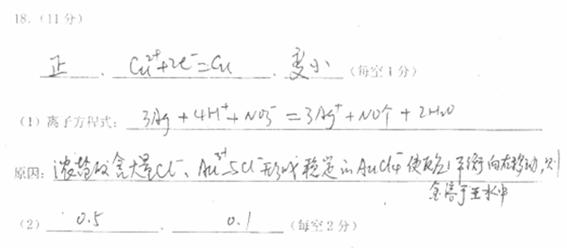 18.（11分）
正 . Cu²⁺+2e⁻=Cu . 变小 （每空1分）
（1）离子方程式: 3Ag + 4H⁺ + NO₃⁻ = 3Ag⁺ + NO↑ + 2H₂O
原因: 浓盐酸含大量Cl⁻、Au³⁺与Cl⁻形成稳定的AuCl₄⁻使 平衡向右移动,
金溶于王水中
（2） 0.5 . 0.1 （每空2分）